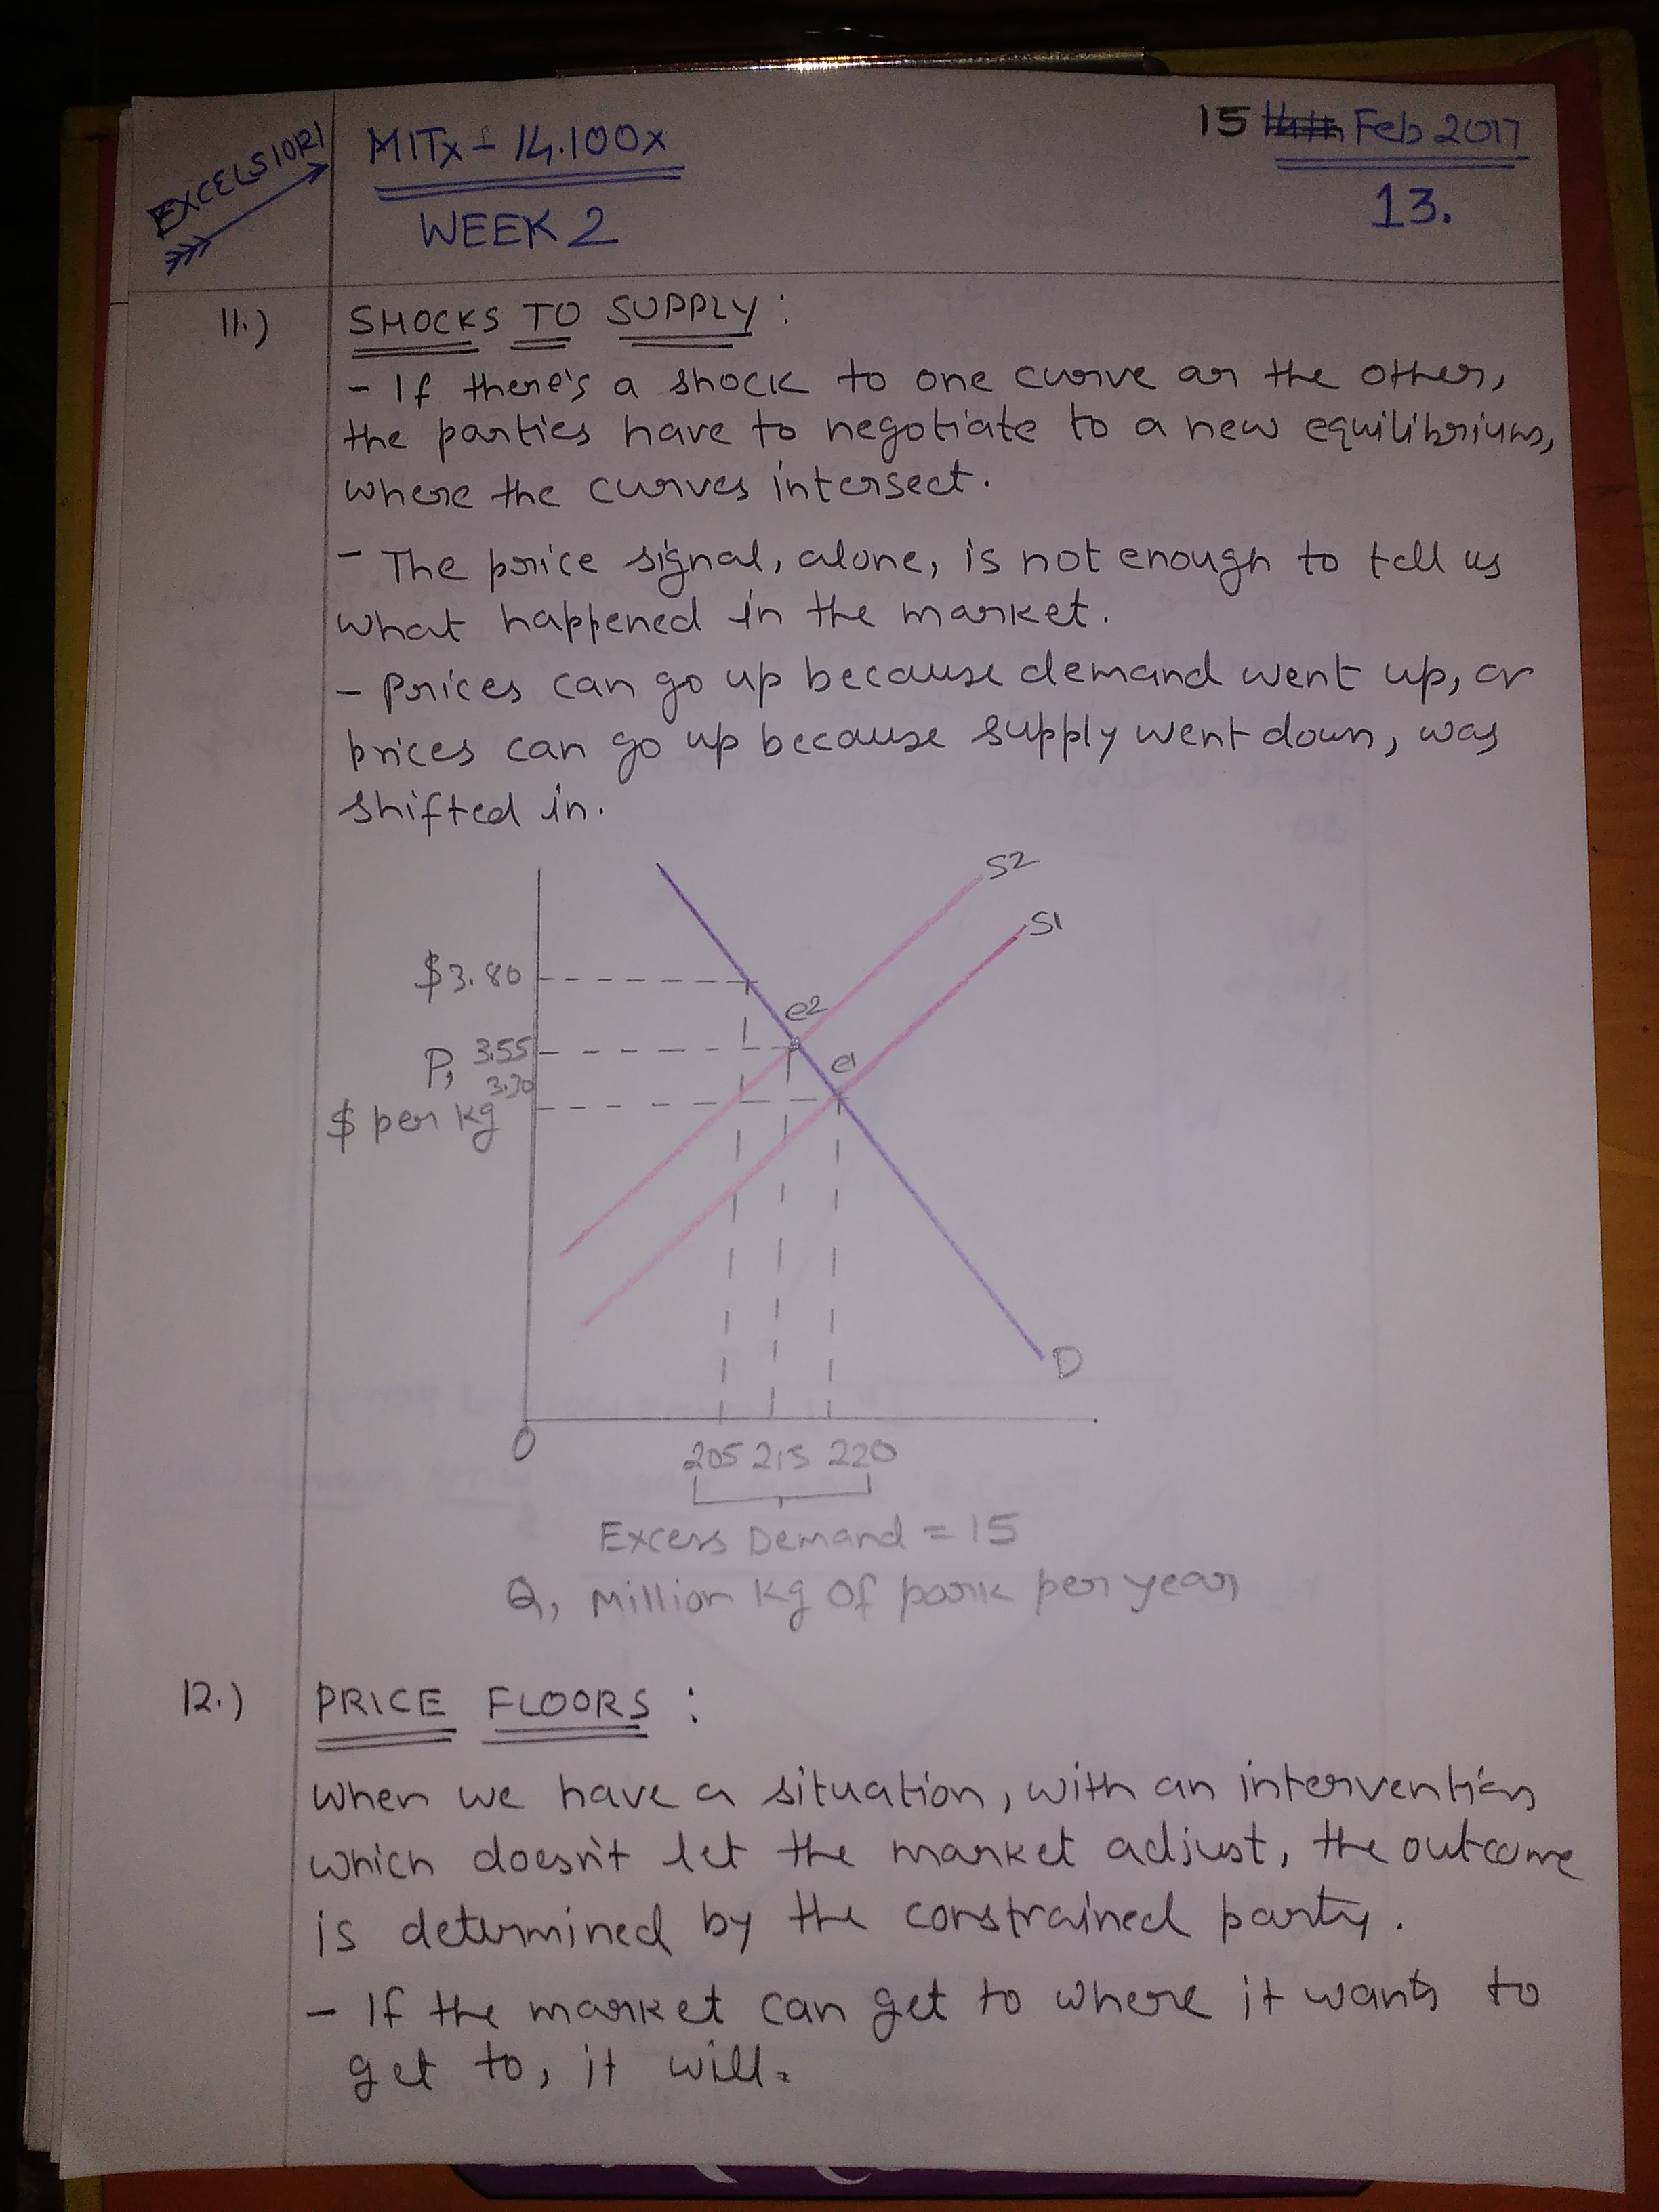 EXCELSIOR!
MITx - 14.100x
WEEK 2
15 Feb 2017
13.
11.) SHOCKS TO SUPPLY :
- If there's a shock to one curve or the other,
the parties have to negotiate to a new equilibrium,
where the curves intersect.
- The price signal, alone, is not enough to tell us
what happened in the market.
- Prices can go up because demand went up, or
prices can go up because supply went down, was
shifted in.
S2
S1
$3.80
e2
3.55
e1
P,
3.30
$ per kg
D
0
205 215 220
Excess Demand = 15
Q, Million kg of pork per year
12.) PRICE FLOORS :
When we have a situation, with an intervention
which doesn't let the market adjust, the outcome
is determined by the constrained party.
- If the market can get to where it wants to
get to, it will.